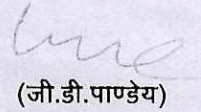 (जी.डी.पाण्डेय)